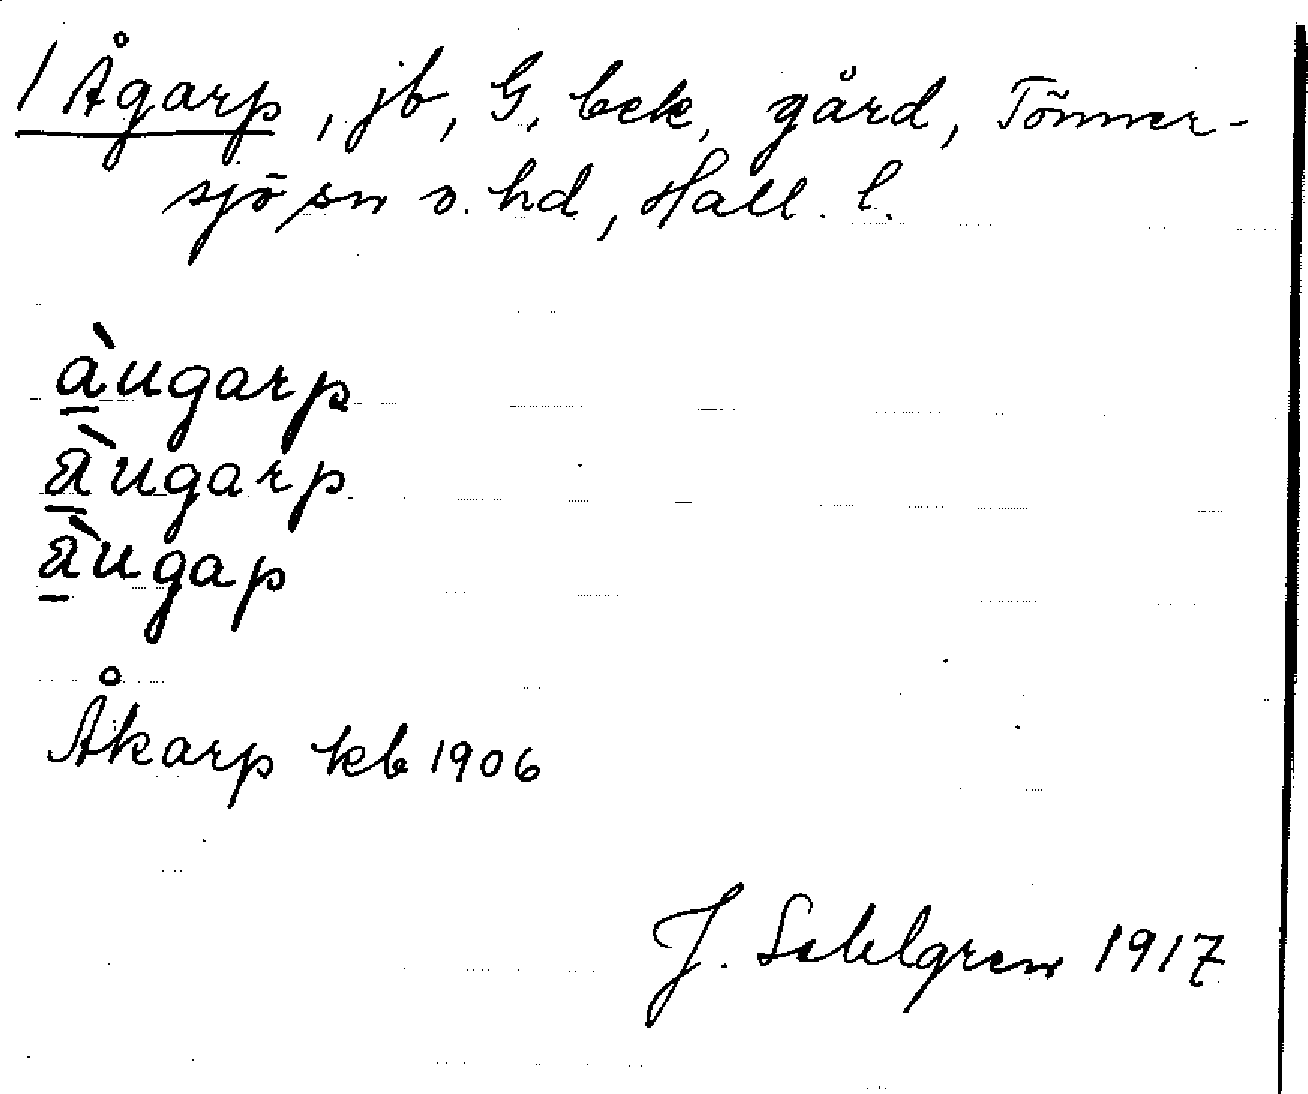 1 Ågarp, jb, G, bek, gård, Tönner-
sjö sn o. hd, Hall. l.
à̱ugarp
à̱ugarp
à̱ugap
Åkarp kb 1906
J. Sahlgren 1917